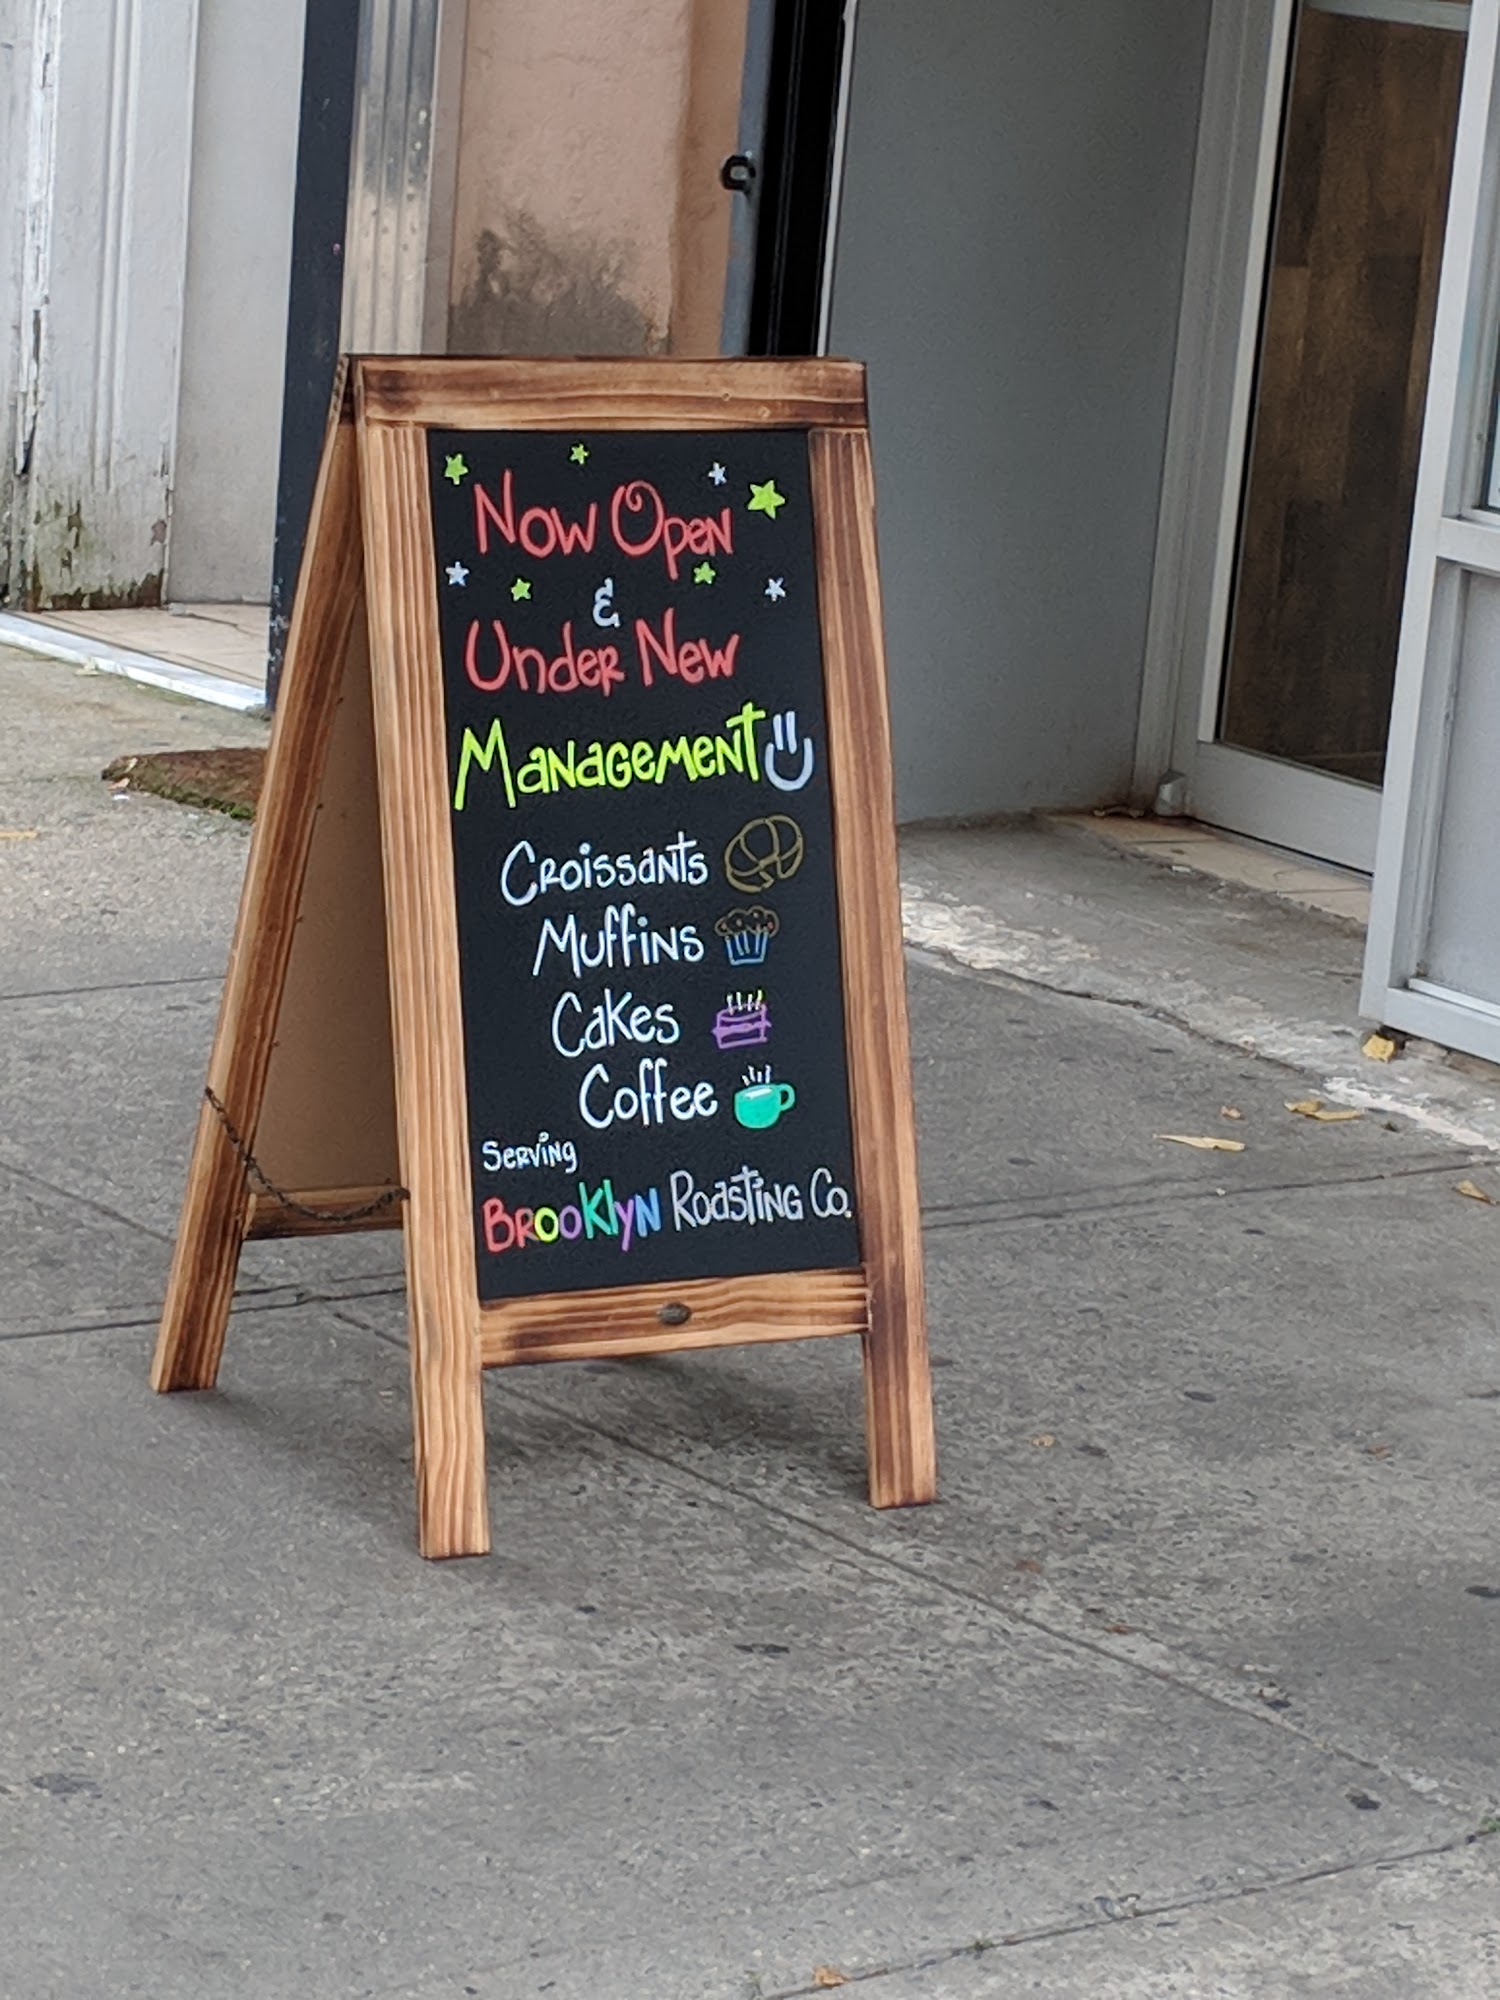 Now Open
&
Under New
Management
Croissants
Muffins
Cakes
Coffee
Serving
Brooklyn Roasting Co.